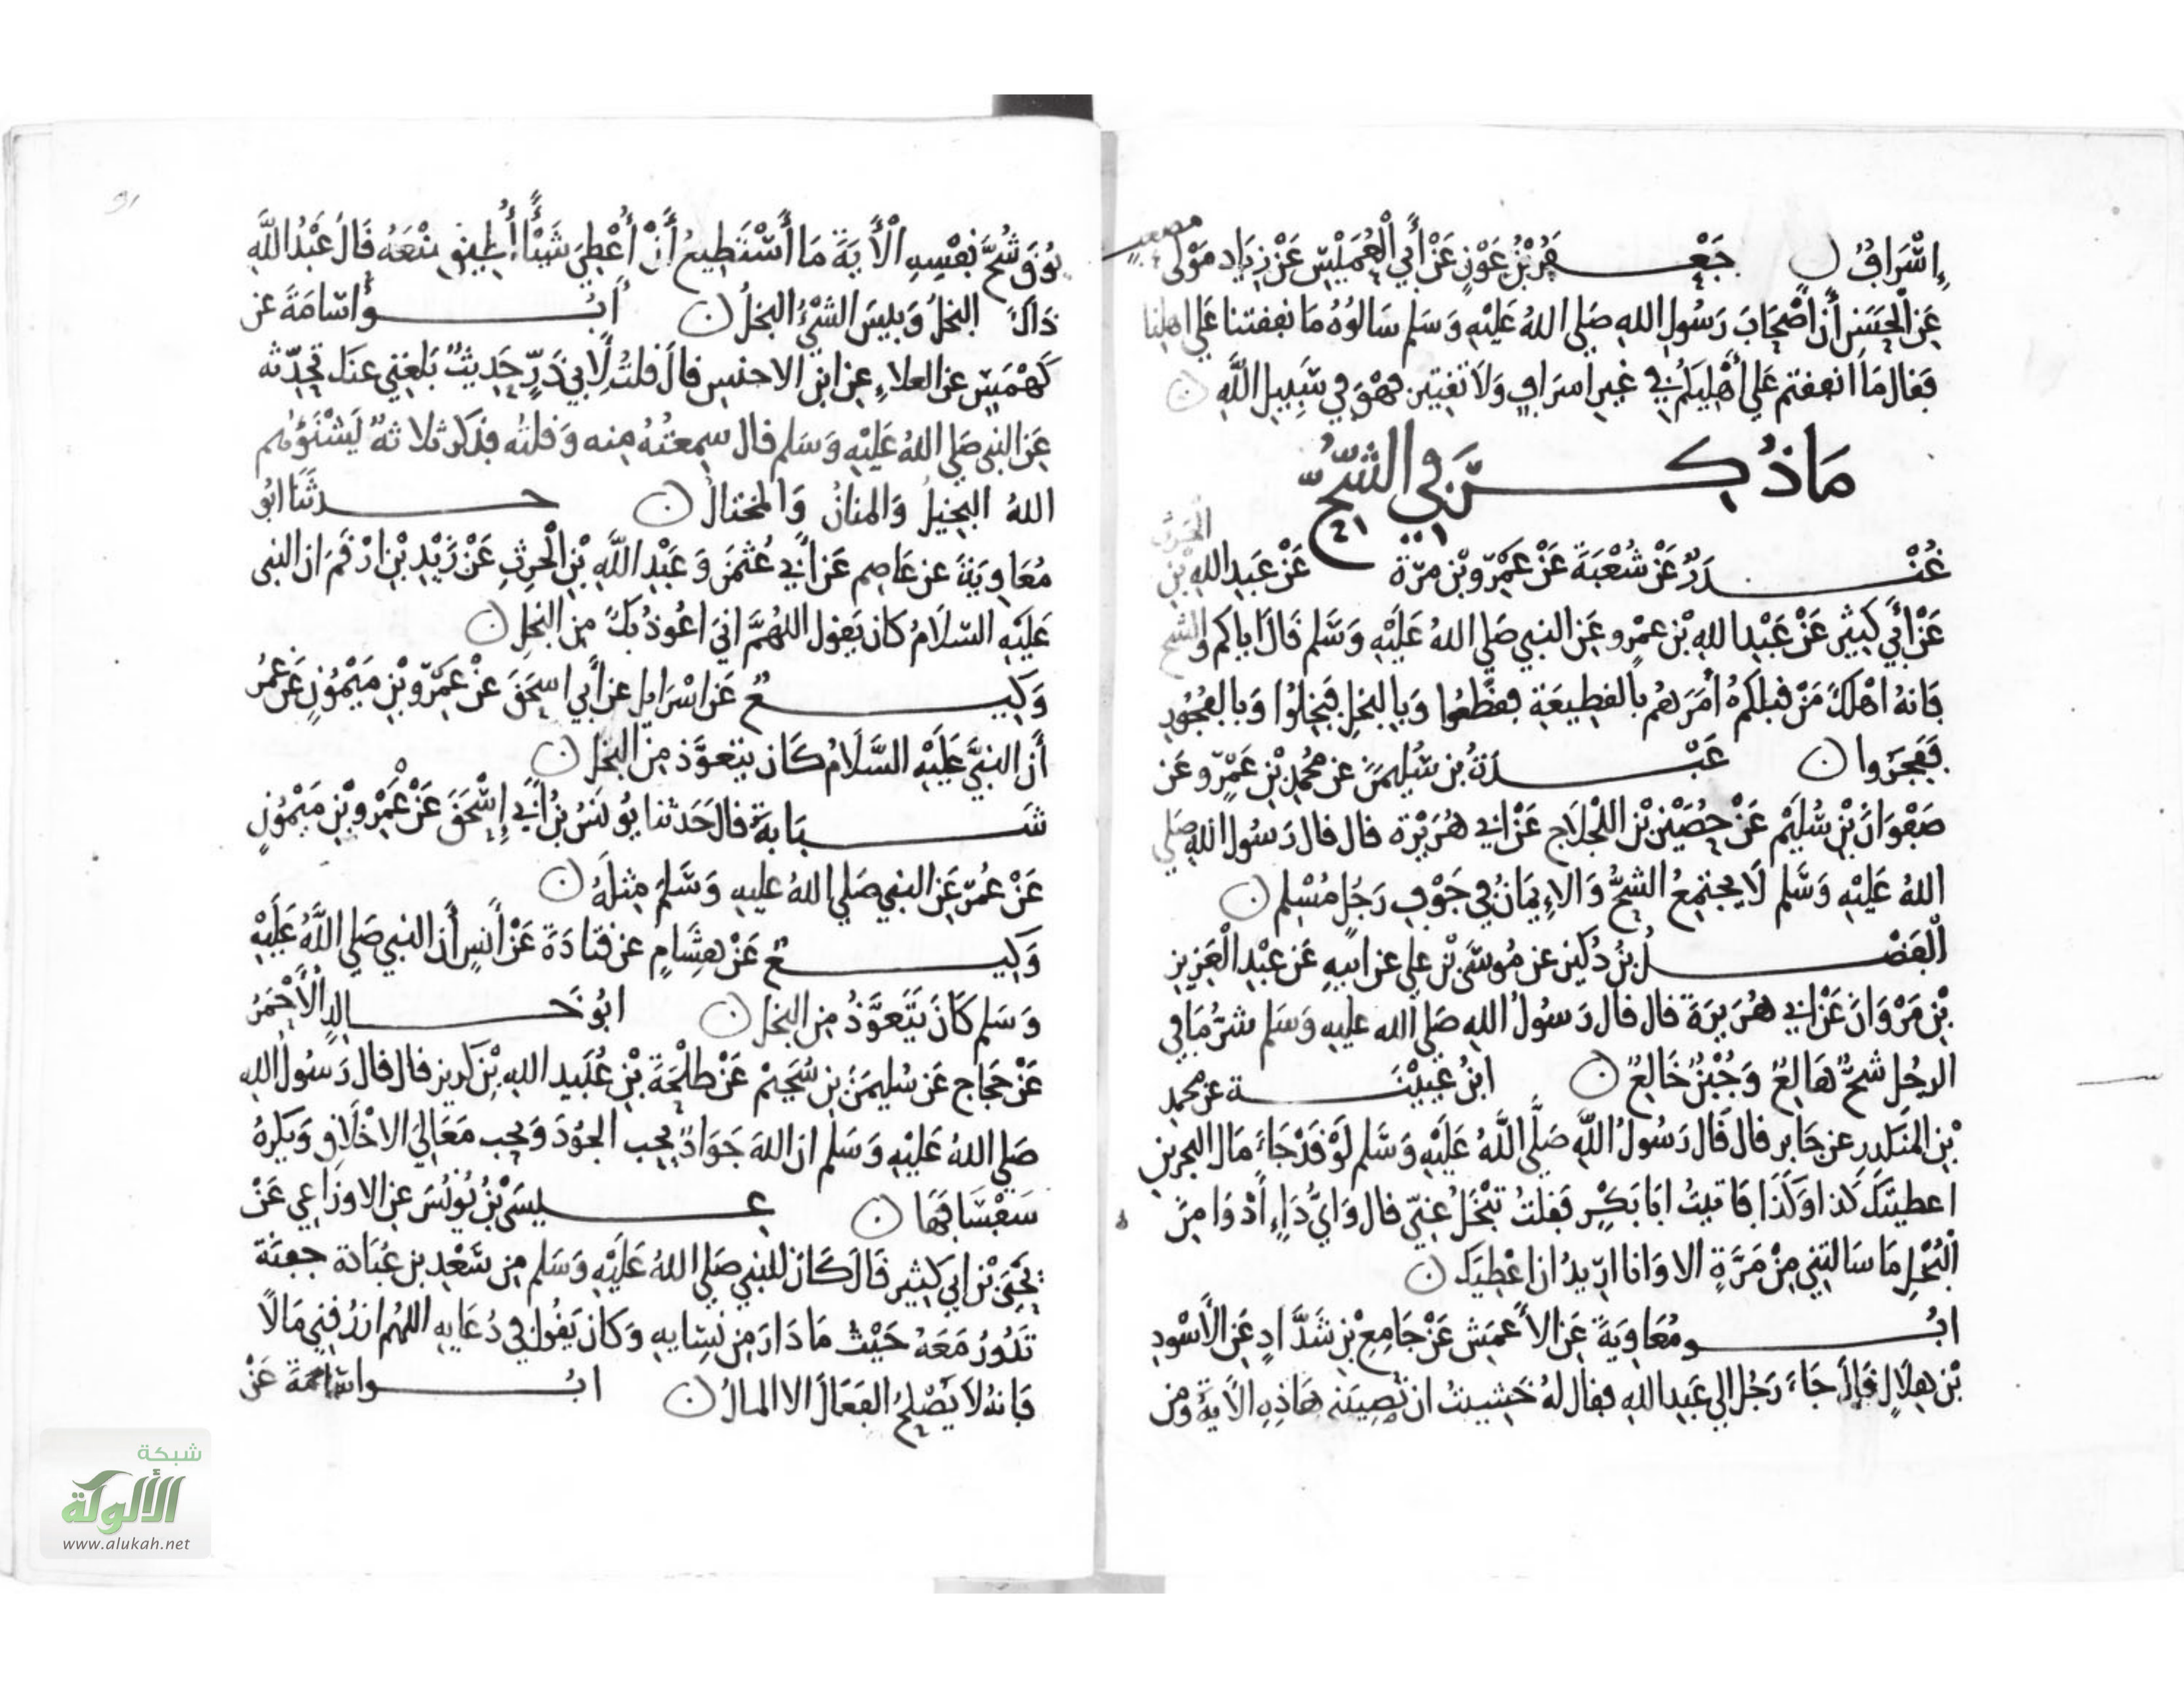 إِسْرَافٌ ن جَعْفَرُ بْنُ عَوْنٍ عَنْ أَبِي الْعُمَيْسِ عَنْ زِيَاد مَوْلَى مصعب
عَنِ الْحَسَنِ أَنَّ اصْحَابَ رَسُولِ اللهِ صَلى اللهُ عَلَيْهِ وَسَلم سَالُوهُ مَا نفقتنا عَلى اهلنا
فَقَال مَا أنفقتم عَلى أَهْلِيكُمْ فِي غير اسرَافٍ وَلَا تقتير فهْوَ فِي سَبِيلِ اللَّهِ ن
مَا ذُكِرَ فِي الشُّحِّ
غُنْدَرٌ عَنْ شُعْبَةَ عَنْ عَمْرو بْنِ مرّة عَنْ عَبْدِ اللهِ بْنِ الْحَرث
عَنْ أَبِي كَثِيرٍ عَنْ عَبْدِ اللهِ بْنِ عمْرو عَنِ النبي صَلى اللهُ عَلَيْهِ وَسَلم قَالَ اياكم والشح
فَانهُ اهْلَكَ مَنْ قبلكمْ أمَرَهُم بالقطِيعَةِ فقطعُوا وَبِالبخلِ فَبَخِلُوا وَبِالفجُورِ
فَفَجَرُوا ن عَبْدَةُ بْنُ سُلَيمَنَ عن محمد بْنِ عَمْرو عَن
صَفْوَانَ بْنِ سُلَيْم عَنْ حُصَيْن بْنِ اللجْلَاج عَنْ ابي هُرَيْرَة قال قال رَسُول الله صَلى
اللهُ عَلَيْهِ وَسَلم لَا يجتمِعُ الشحُّ وَالايمَانُ فِي جَوْفِ رَجُلٍ مُسْلِم ن
الْفَضْلُ بْنُ دُكَيْن عن مُوسَى بْن علي عن ابيهِ عَن عَبْدِ الْعَزِيزِ
بْنِ مَرْوَانَ عَنْ ابي هُرَيرَةَ قال قال رَسُولُ اللهِ صَلى الله عليهِ وَسَلم شرُّ مَا فِي
الرجُل شحٌّ هَالِعٌ وَجُبْنٌ خَالِعٌ ن ابْنُ عُيَيْنَة عن محمد
بْنِ المنكدرِ عن جَابر قال قَالَ رَسُولُ اللَّهِ صَلَّى اللَّهُ عَلَيْهِ وَسَلم لَوْ قَدْ جَاءَ مَال البحرين
اعطيتكَ كَذا وَكَذَا فَاتيتُ ابَا بَكْرٍ فَقلتُ تَبْخَلُ عَنِّي قال وَايُّ دَاءٍ أَدْوَا مِنَ
الْبُخْلِ مَا سَالتني مِنْ مَرَّةٍ الا وَانا ارِيدُ ان اعْطِيَكَ ن
ابُو مُعَاوِيَةَ عَنِ الأَعمَش عَنْ جَامِعْ بْنِ شَدَّادٍ عَنِ الأَسْودِ
بْنِ هِلَالٍ قَالَ جَاءَ رَجُلٌ الى عَبدِ اللهِ فقال لهُ خَشِيتُ ان تُصِيبَني هَاذِهِ الَايَةُ وَمَن
يُوقَ شُحَّ نَفْسِهِ الْأَيَةَ مَا أَسْتَطِيعُ أَنْ أُعْطِيَ شَيْئًا أُطِيقُ مَنْعَهُ قَالَ عَبْدُ اللَّهِ
ذَاكَ البُخلُ وَبِيسَ الشيْءُ البُخلُ ن أَبُو أُسَامَةَ عن
كَهْمَسٍ عن العلاءِ عن ابْن الاحنس قالَ قلتُ لِأَبِي ذَرٍّ حَدِيثٌ بَلَغَنِي عَنكَ تحَدِّثه
عَنِ النبي صَلى اللهُ عَلَيْهِ وَسَلم قال سمعتُهُ مِنه وَقلته فذَكر ثلاثةٌ يَشْنَؤُهُم
اللهُ البخِيلُ وَالمنانُ وَالمختالُ ن حَدثَنَا ابُو
مُعَاوِيَةَ عن عَاصِم عَن أَبِي عُثْمَنَ وَعَبْدِ اللَّهِ بْنِ الْحَرِثِ عَنْ زَيْدِ بْنِ ارْقَمَ ان النبي
عَلَيْهِ السّلَامُ كَان يَقول اللهُمَّ اني اعُوذ بكَ مِن البخلِ ن
وَكِيعٌ عَن اسْرَايِل عن أَبِي اسحَقَ عَنْ عَمْرو بْنِ مَيْمُونٍ عَنْ عُمَرُ
أَن النبيَّ عَلَيْهِ السَّلَامُ كَانَ يَتَعوَّذ مِنَ البُخل ن
شَبَابَةُ قالَ حَدَثنا يُونسُ بْنُ أَبِي إِسْحَقَ عَنْ عَمْرِو بْنِ مَيْمُونٍ
عَنْ عُمَرَ عَنِ النبي صَلى اللهُ عليهِ وَسَلم مِثلَهُ ن
وَكِيعٌ عَنْ هِشَامٍ عن قتادَةَ عَنْ أَنسٍ أَن النبي صَلى اللَّهُ عَلَيْهِ
وَسَلم كَانَ يَتَعوَّذُ مِن البُخل ن ابُو خَالِدٍ الْأَحْمَرُ
عَنْ حَجَّاج عَن سُليمَنَ بن سُحَيم عَنْ طَلْحَةَ بْنِ عُبَيدِ اللهِ بْنِ كَرِيز قال قال رَسُولُ اللهِ
صَلى اللهُ عَلَيْهِ وَسَلم ان اللهَ جَوَادٌ يُحِب الجُودَ وَيُحِب مَعَالِيَ الاخْلَاقِ وَيَكرهُ
سَفْسَافَهَا ن عِيسَى بْنُ يُونُسَ عن الاوزَاعِي عَنْ
يَحْيَى بْنِ ابِي كَثِيرٍ قَالَ كَانَ للنبي صَلى اللهُ عَلَيْهِ وَسَلم مِن سَعْدِ بْنِ عُبَادة جفنَة
تَدُورُ مَعَهُ حَيْثُ مَا دَارَ مِن نِسَايهِ وَكانَ يَقُول فِي دُعَايهِ اللهُم ارزُقنِي مَالًا
فَانهُ لَا يَصْلِحُ الفَعَالَ الا المَالُ ن ابُو اسَامَة عَنْ
شبكة
الألوكة
www.alukah.net